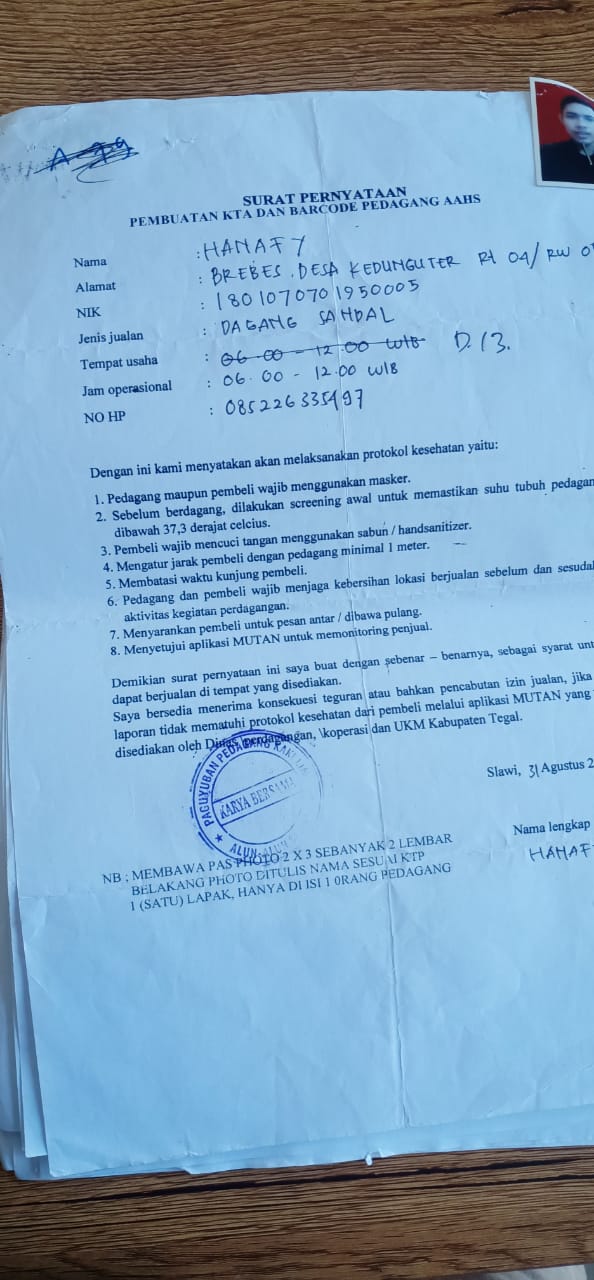 SURAT PERNYATAAN
PEMBUATAN KTA DAN BARCODE PEDAGANG AAHS
Nama : HANAFY
Alamat : BREBES. DESA KEDUNGUTER Rt 04/ RW
NIK : 1801070701950005
Jenis jualan : DAGANG SANDAL
Tempat usaha : 06.00 - 12.00 WIB D.13.
Jam operasional : 06.00 - 12.00 WIB
NO HP : 085226335497
Dengan ini kami menyatakan akan melaksanakan protokol kesehatan yaitu:
1. Pedagang maupun pembeli wajib menggunakan masker.
2. Sebelum berdagang, dilakukan screening awal untuk memastikan suhu tubuh pedagan
dibawah 37,3 derajat celcius.
3. Pembeli wajib mencuci tangan menggunakan sabun / handsanitizer.
4. Mengatur jarak pembeli dengan pedagang minimal 1 meter.
5. Membatasi waktu kunjung pembeli.
6. Pedagang dan pembeli wajib menjaga kebersihan lokasi berjualan sebelum dan sesuda
aktivitas kegiatan perdagangan.
7. Menyarankan pembeli untuk pesan antar / dibawa pulang.
8. Menyetujui aplikasi MUTAN untuk memonitoring penjual.
Demikian surat pernyataan ini saya buat dengan sebenar – benarnya, sebagai syarat unt
dapat berjualan di tempat yang disediakan.
Saya bersedia menerima konsekuesi teguran atau bahkan pencabutan izin jualan, jika
laporan tidak mematuhi protokol kesehatan dari pembeli melalui aplikasi MUTAN yang
disediakan oleh Dinas \perdagangan, \koperasi dan UKM Kabupaten Tegal.
Slawi, 31 Agustus 2
PAGUYUBAN PEDAGANG
KARYA BERSAMA
ALUN-ALUN
Nama lengkap
HANAF
NB ; MEMBAWA PAS PHOTO 2 X 3 SEBANYAK 2 LEMBAR
BELAKANG PHOTO DITULIS NAMA SESUAI KTP
1 (SATU) LAPAK, HANYA DI ISI 1 0RANG PEDAGANG